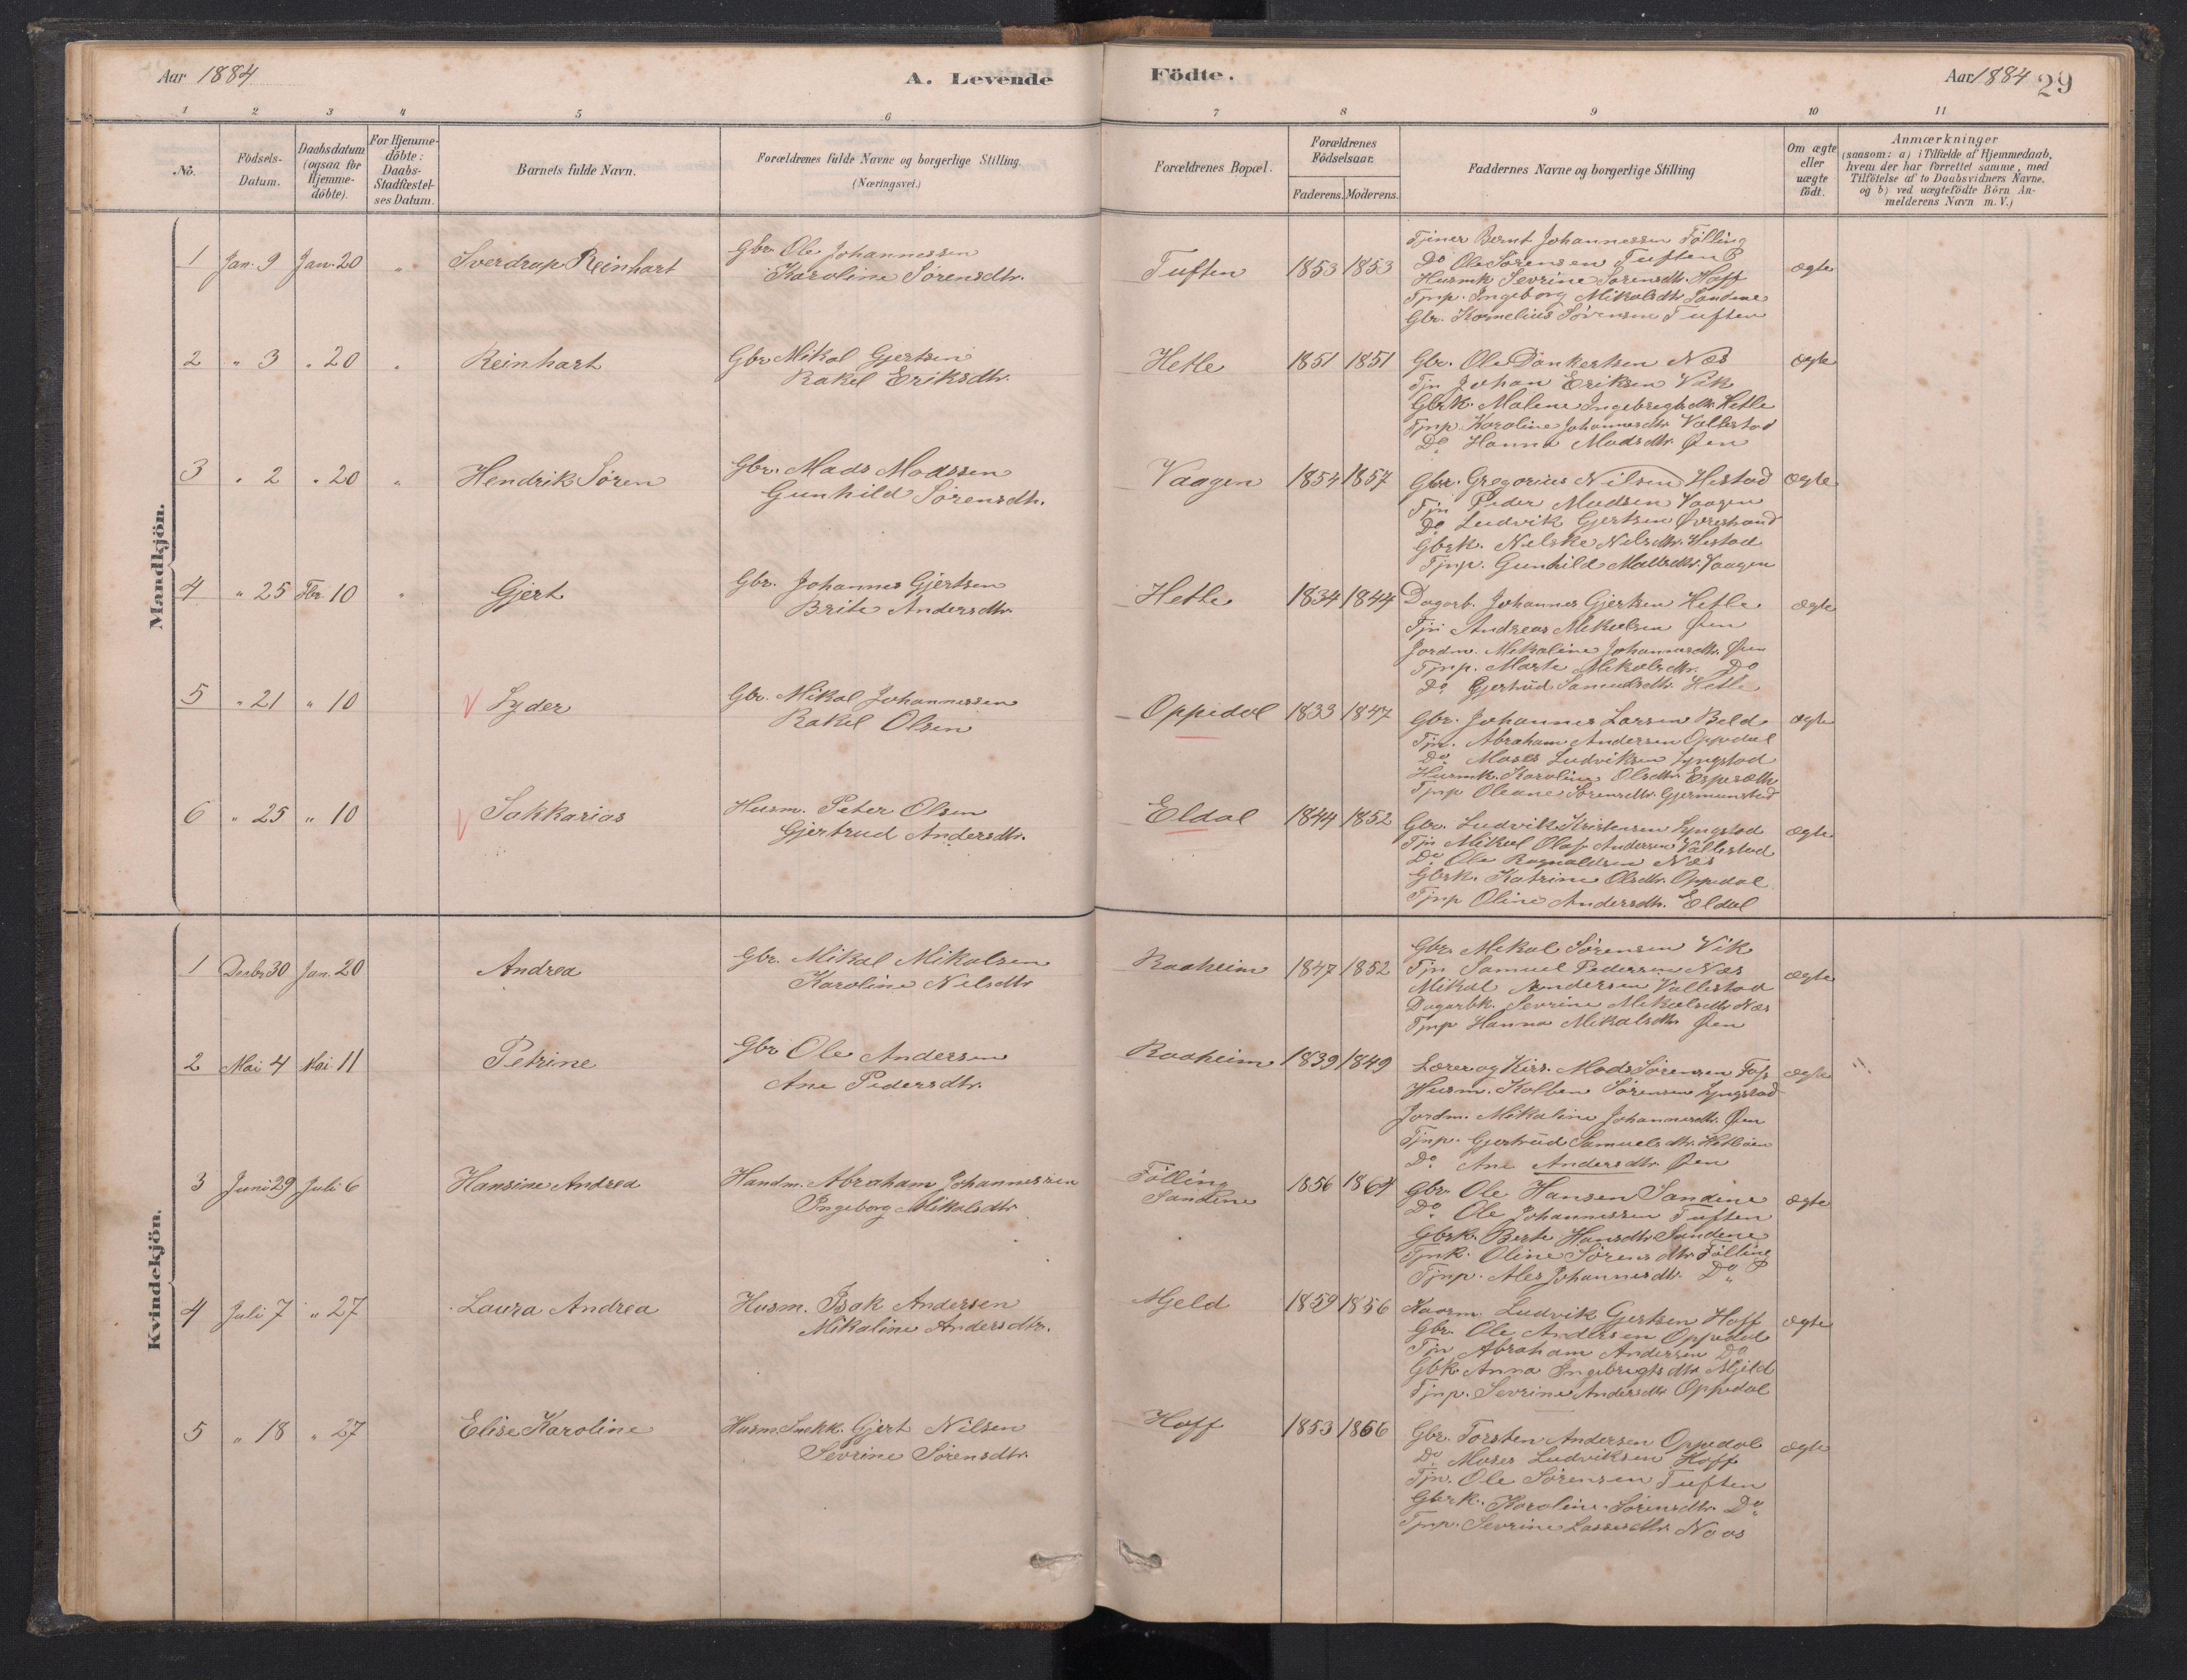 Aar 1884
A. Levende
Födte.
Aar 1884
29
1 2 3 4 5 6 7 8 9 10 11
No.
Födsels-
Datum.
Daabsdatum
(ogsaa for
Hjemme-
döbte).
For Hjemme-
döbte:
Daabs-
Stadfæstel-
ses Datum.
Barnets fulde Navn.
Forældrenes fulde Navne og borgerlige Stilling.
(Næringsvei.)
Forældrenes Bopæl.
Forældrenes
Födselsaar.
Faderens. Moderens.
Faddernes Navne og borgerlige Stilling
Om ægte
eller
uægte
födt.
Anmærkninger
(saasom: a) i Tilfælde af Hjemmedaab,
hvem der har forrettet samme, med
Tilföielse af to Daabsvidners Navne.
og b) ved uægtefödte Börn An-
melderens Navn m. V.)
Mandkjön.
1 Jan. 9 Jan. 20 " Sverdrup Reinhart
Gbr. Ole Johannessen
Karoline Sørensdtr.
Tuften 1853 1853
Tjener Bernt Johannessen Følling
Do Ole Sørensen Tuften
Husmk. Sevrine Sørensdtr. Hoff
Tjnp. Ingeborg Mikalsdtr. Sandene
Gbr. Kornelius Sørensen Tuften
ægte
2 " 3 " 20 " Reinhart
Gbr. Mikal Gjertsen
Rakel Eriksdtr.
Hetle 1851 1851
Gbr. Ole Dankertsen Næs
Tjn Johan Eriksen Vik
Gbrk. Malene Ingebregtsdtr. Hetle
Tjnp. Karoline Johannesdtr. Vallestad
Do. Hanna Madsdtr. Øen
ægte
3 " 2 " 20 " Hendrik Søren
Gbr. Mads Madssen
Gunhild Sørensdtr.
Vaagen 1854 1857
Gbr. Gregorius Nilsen Hestad
Tjn Peder Madsen Vaagen
Do Ludvik Gjertsen Øvrestrand
Gbrk. Nilske Nilsdtr. Hestad
Tjnp. Gunhild Madsdtr. Vaagen
ægte
4 " 25 Fbr. 10 " Gjert
Gbr. Johannes Gjertsen
Brite Andersdtr.
Hetle 1834 1844
Dagarb. Johannes Gjertsen Hetle
Tjn Andreas Mikalsen Øen
Jordm. Mikaline Johannesdtr. Øen
Tjnp. Marte Mikalsdtr. Do
Do. Gjertrud Samuelsdtr. Hetle
ægte
5 " 21 " 10 Lyder
Gbr. Mikal Johannessen
Rakel Olsen
Oppedal 1833 1847
Gbr. Johannes Larsen Beld
Tjn. Abraham Andersen Oppedal
Do. Moses Ludviksen Lyngstad
Husmk. Karoline Olsdtr. Espesæth
Tjnp Oleane Sørensdtr. Gjermunstad
ægte
6 " 25 " 10 Sakkarias
Husm. Peter Olsen
Gjertrud Andersdtr.
Eldal 1844 1852
Gbr. Ludvik Kristensen Lyngstad
Tjn Mikal Olaf Andersen Vallestad
Do. Ole Ragnaldsen Næs
Gbrk. Katrine Olsdtr. Oppedal
Tjnp Oline Andersdtr. Eldal
ægte
Kvindekjön.
1 Decbr 30 Jan. 20 Andrea
Gbr. Mikal Mikalsen
Karoline Nilsdtr
Raaheim 1847 1852
Gbr. Mikal Sørensen Vik
Tjn Samuel Pedersen Næs
Mikal Andersen Vallestad
Dagarbk. Sevrine Mikalsdtr. Næs
Tjnp Hanna Mikalsdtr. Øen
ægte
2 Mai 4 Mai 11 Petrine
Gbr Ole Andersen
Ane Pedersdtr.
Raaheim 1839 1849
Lærer og Kirs. Mads Sørensen Fos
Husm. Kolben Sørensen Lyngstad
Jordm. Mikaline Johannesdtr. Øen
Tjnp. Gjertrud Samuelsdtr. Hetleøen
Do. Ane Andersdtr. Øen
ægte
3 Juni 29 Juli 6 Hansine Andrea
Handm. Abraham Johannessen
Ingeborg Mikalsdtr
Følling
Sandene
1856 1864
Gbr. Ole Hansen Sandene
Do. Ole Johannessen Tuften
Gbrk. Berte Hansdtr. Sandene
Tjnk. Oline Sørensdtr. Følling
Tjnp. Ales Johannesdtr. Do
ægte
4 Juli 7 " 27 Laura Andrea
Husm. Isak Andersen
Mikaline Andersdtr.
Mjeld 1859 1856
Kaarm. Ludvik Gjertsen Hoff
Gbr. Ole Andersen Oppedal
Tjn Abraham Andersen Do
Gbk. Anna Ingebregtsdtr. Mjeld
Tjnp. Sevrine Andersdtr. Oppedal
ægte
5 " 18 " 27 Elise Karoline
Husm. Snekk. Gjert Nilsen
Sevrine Sørensdtr.
Hoff 1853 1856
Gbr. Torsten Andersen Oppedal
Do Moses Ludviksen Hoff
Tjn. Ole Sørensen Tuften
Gbrk. Karoline Sørensdtr. Do.
Tjnp. Sevrine Lassesdtr. Naas
ægte